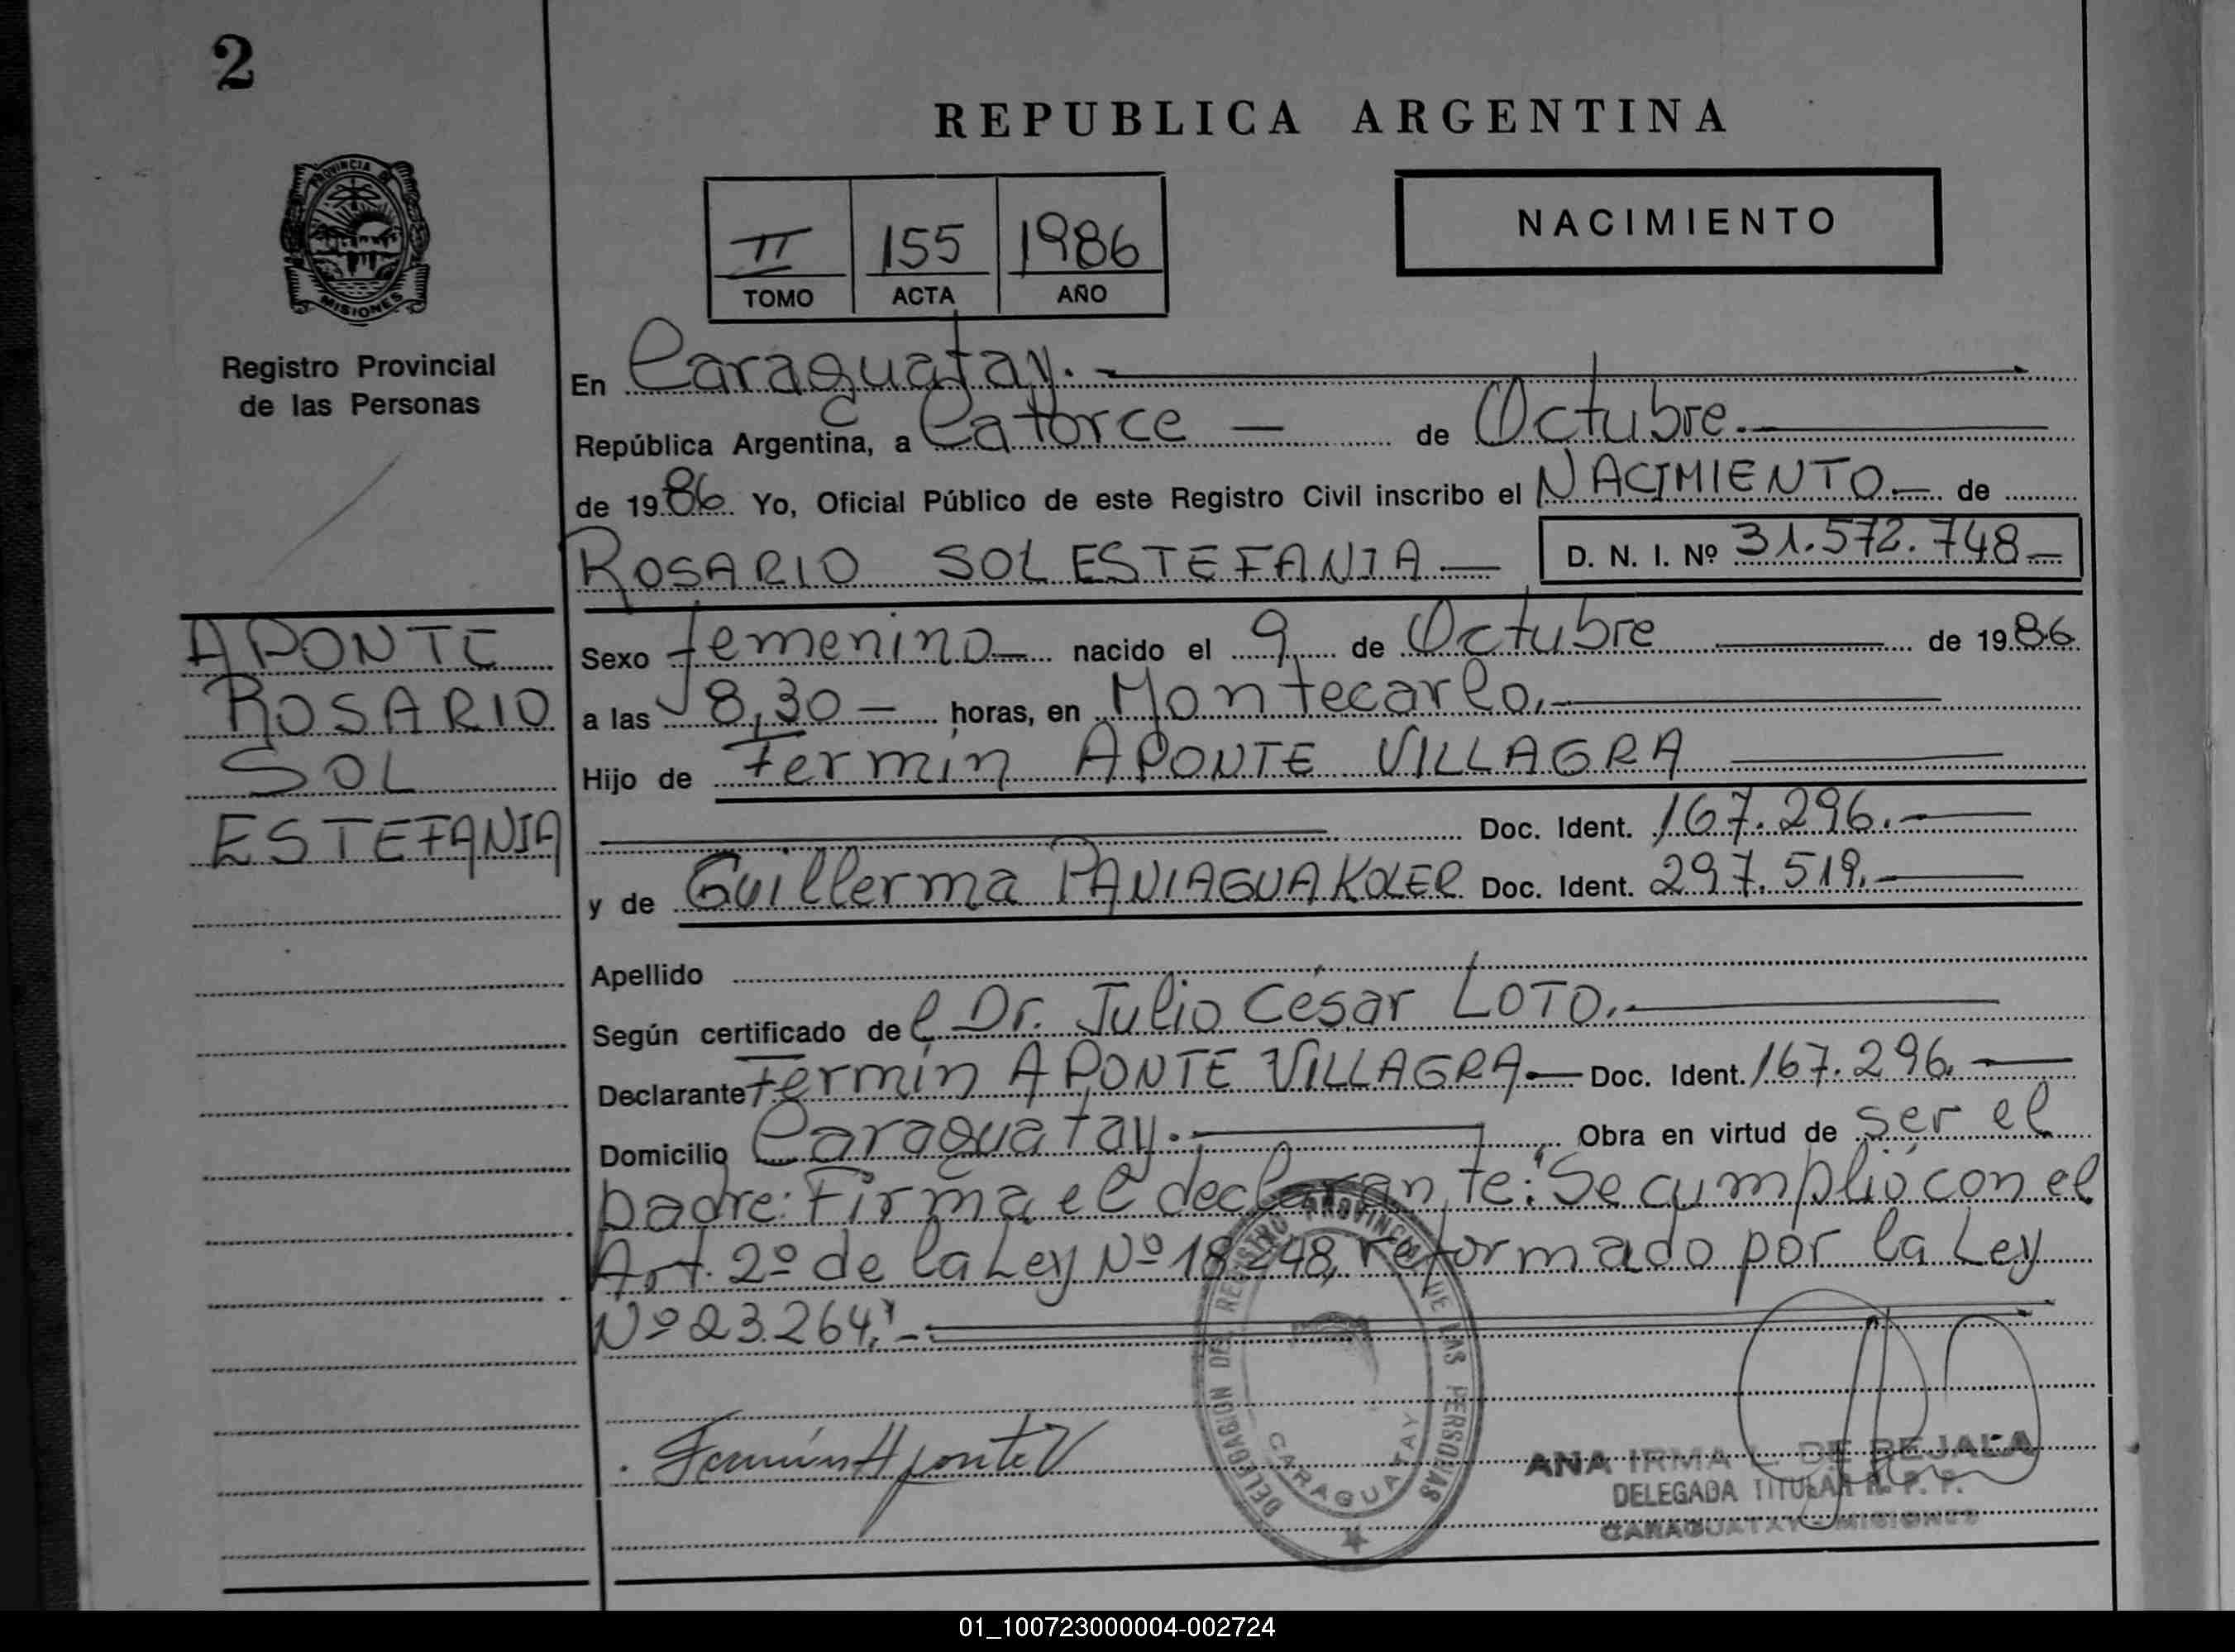 2
REPUBLICA ARGENTINA
PROVINCIA DE
MISIONES
Registro Provincial
de las Personas
II 155 1986
TOMO ACTA AÑO
NACIMIENTO
En Caraguatay.-
República Argentina, a Catorce - de Octubre.-
de 1986. Yo, Oficial Público de este Registro Civil inscribo el NACIMIENTO.- de
ROSARIO SOL ESTEFANIA - D. N. I. Nº 31.572.748-
APONTE
ROSARIO
SOL
ESTEFANIA
Sexo femenino- nacido el 9 de Octubre de 1986
a las 8,30 - horas, en Montecarlo.-
Hijo de Fermín APONTE VILLAGRA
Doc. Ident. 167.296.-
y de Guillerma PANIAGUA KOLER Doc. Ident. 297.519.-
Apellido
Según certificado del Dr. Julio César LOTO.-
Declarante Fermín APONTE VILLAGRA- Doc. Ident. 167.296.-
Domicilio Caraguatay.- Obra en virtud de ser el
padre: Firma el declarante: "Se cumplió con el
Art. 2º de la Ley Nº 18.248, reformado por la Ley
Nº 23.264."-
Fermín Aponte V
DELEGACION DEL REGISTRO PROVINCIAL DE LAS PERSONAS
CARAGUATAY
ANA IRMA L. DE BEJALA
DELEGADA TITULAR R. P. P.
CARAGUATAY - MISIONES
01_100723000004-002724